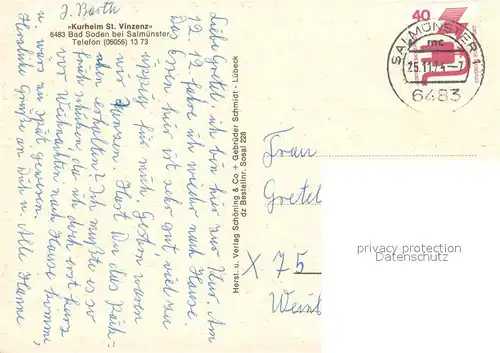 J. Barth
»Kurheim St. Vinzenz«
6483 Bad Soden bei Salmünster
Telefon (06056) 13 73
Liebe Gretel, ich bin hier zur Kur. Am
12. 12. fahre ich wieder nach Hause.
Das Essen hier ist sehr gut viel zu
üppig für mich. Gestern waren
wir Hast Du das Päck-
chen erhalten? Ich mußte es so
früh schicken da ich doch erst kurz
vor Weihnachten nach Hause komme,
u. wäre zu spät gewesen.
Herzliche Grüße an Dich u. Alle Hanne
Herst. u. Verlag Schöning & Co + Gebrüder Schmidt - Lübeck
dz Bestellnr. Sosal 228
40
SALMÜNSTER 1
mc
25.11.74-7
6483
Frau
Gretel
X 75
Weint
privacy protection
Datenschutz